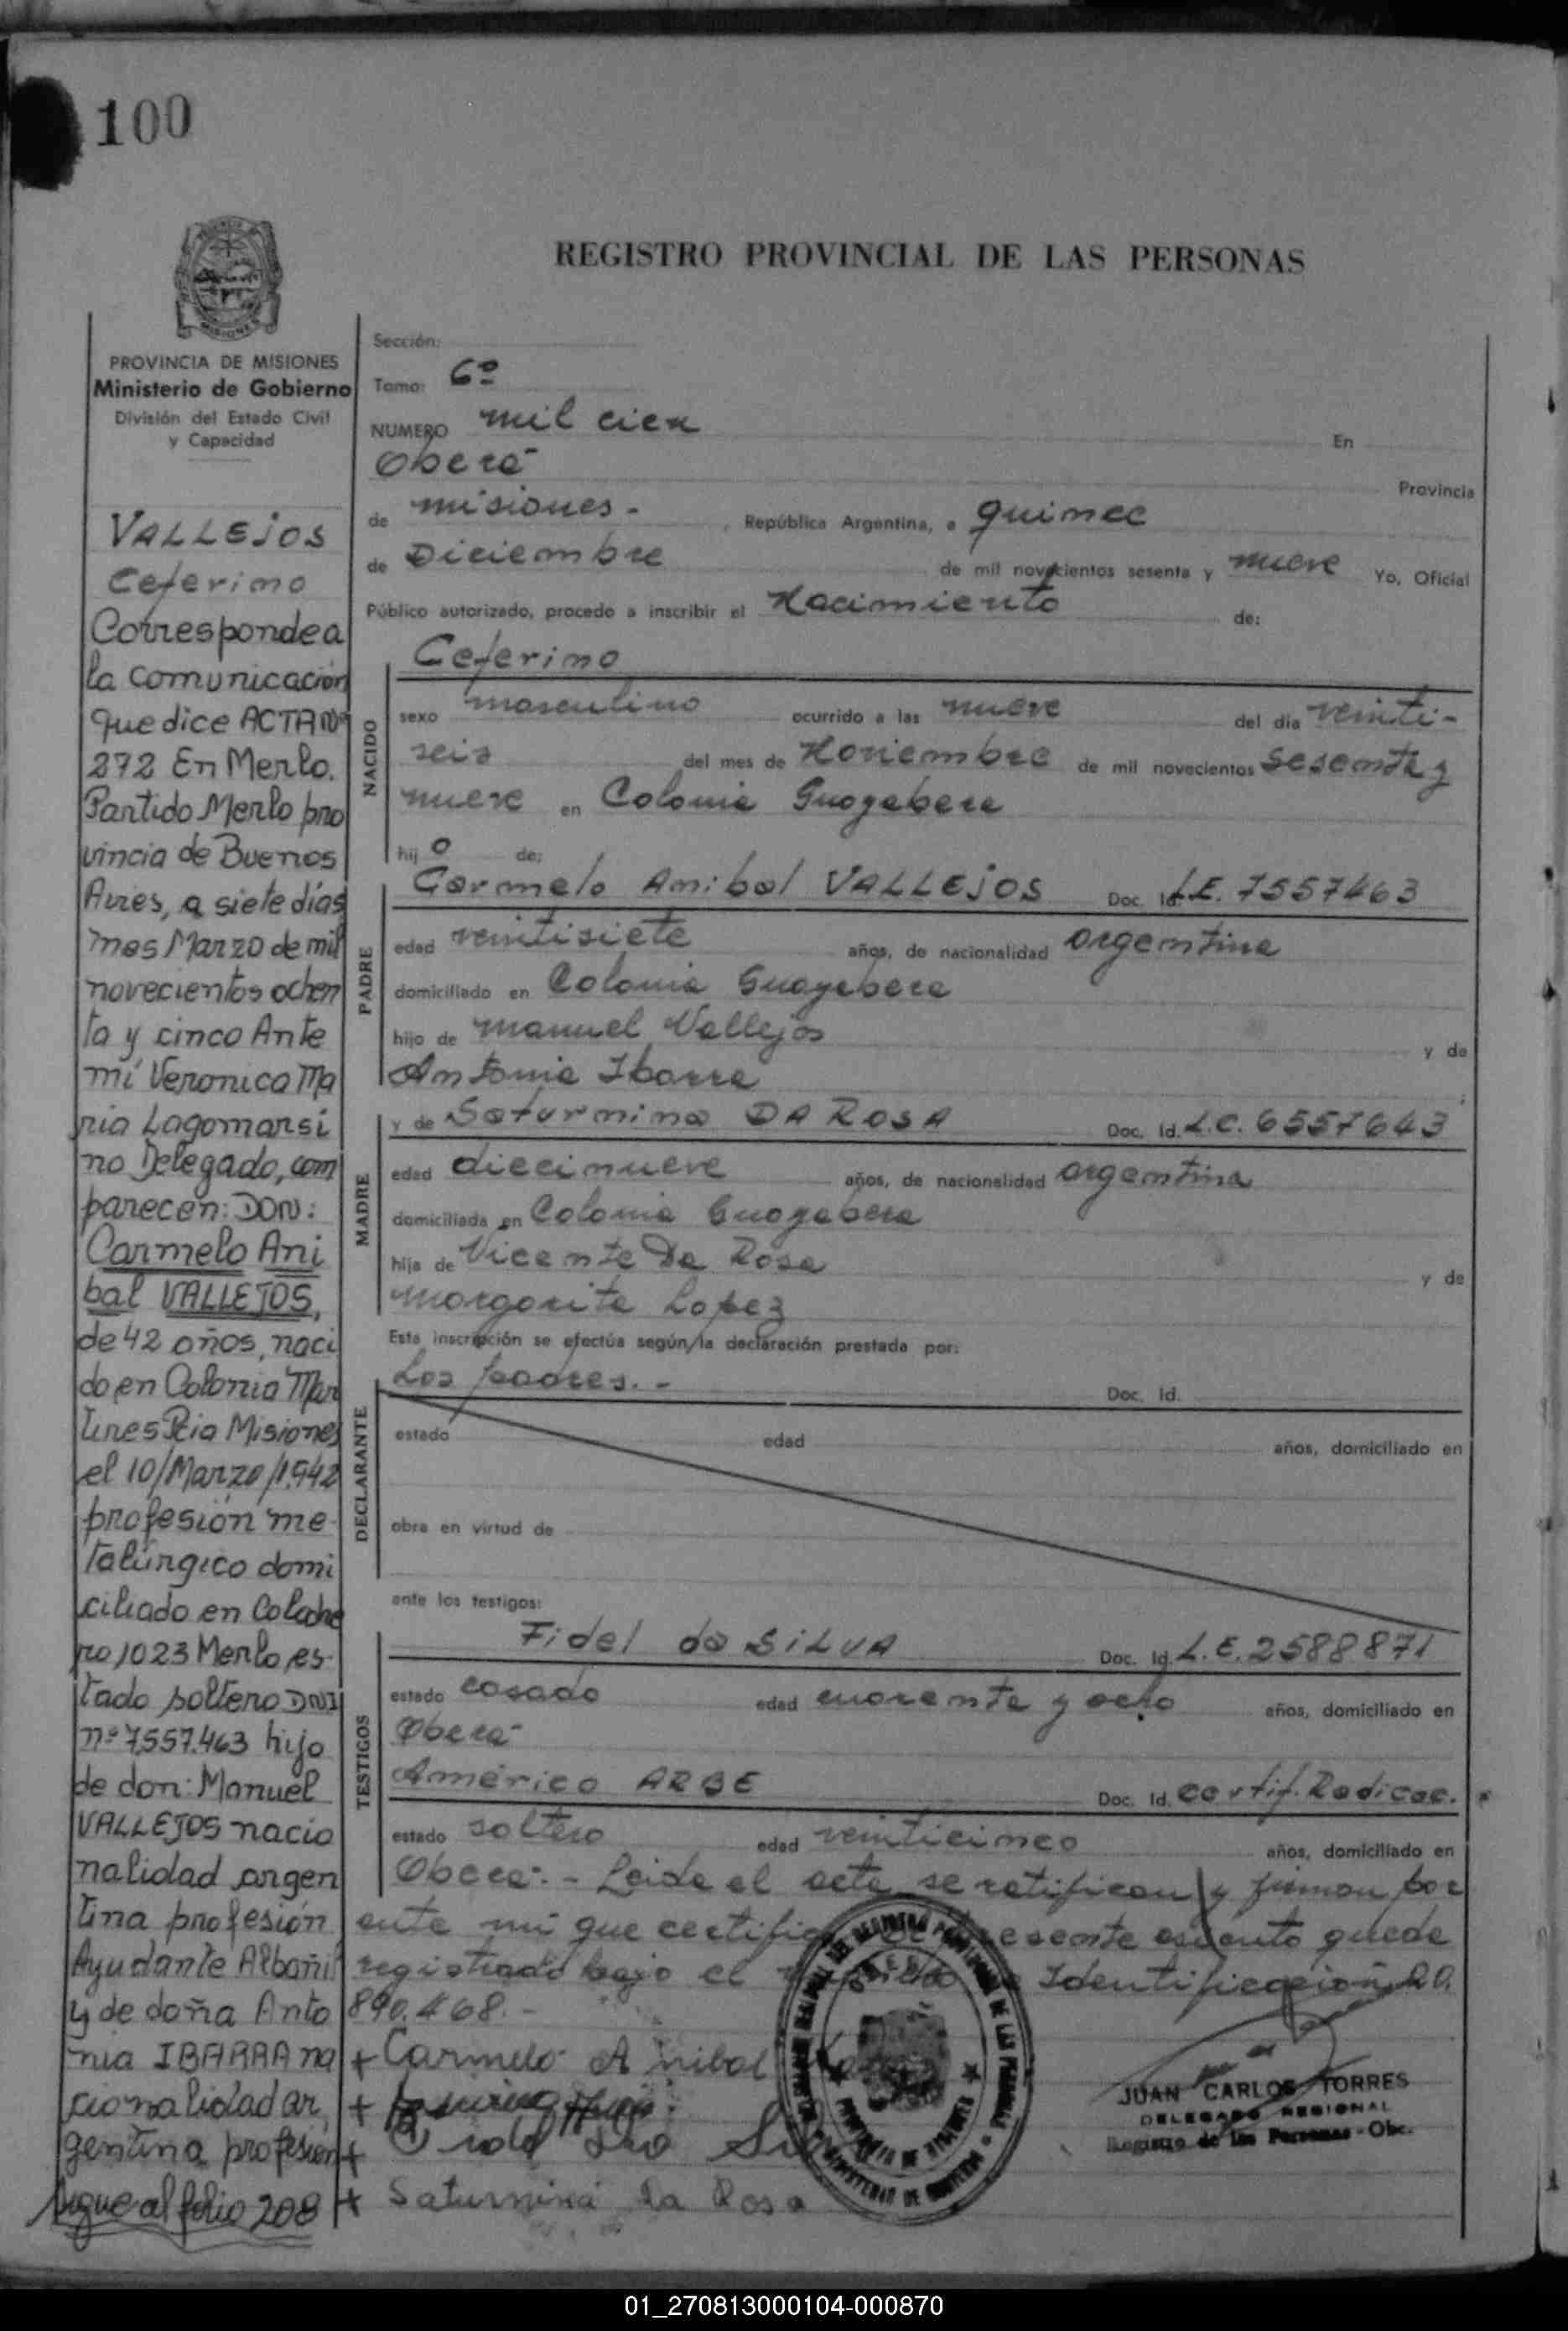 100
REGISTRO PROVINCIAL DE LAS PERSONAS
PROVINCIA DE MISIONES
Ministerio de Gobierno
División del Estado Civil
y Capacidad
VALLEJOS
Ceferino
Corresponde a
la comunicación
que dice ACTA Nº
272 En Merlo.
Partido Merlo pro
vincia de Buenos
Aires, a siete días
mes Marzo de mil
novecientos ochen
ta y cinco Ante
mí Veronica Ma
ria Lagomarsi
no Delegado, com
parecen: DON:
Carmelo Ani
bal VALLEJOS,
de 42 años, naci
do en Colonia Mar
tires Pcia Misiones
el 10/Marzo/1.942
profesión me-
talúrgico domi
ciliado en
1023 Merlo es-
tado soltero DNI
nº 7.557.463 hijo
de don: Manuel
VALLEJOS nacio
nalidad argen
tina profesión
Ayudante Albañil
y de doña Anto
nia IBARRA na
cionalidad ar
gentina profesión
Sigue al folio 208
Sección:
Tomo: 6º
NUMERO mil cien En
Oberá
Provincia
de misiones.- , República Argentina, a quince
de Diciembre de mil novecientos sesenta y nueve Yo, Oficial
Público autorizado, procedo a inscribir el Nacimiento de:
NACIDO
Ceferino
sexo masculino ocurrido a las nueve del día veinti-
seis del mes de Noviembre de mil novecientos sesenta y
nueve en Colonia Guayabera
hij o de:
PADRE
Carmelo Anibal VALLEJOS Doc. Id. L.E. 7557463
edad veintisiete años, de nacionalidad argentina
domiciliado en Colonia Guayabera
hijo de Manuel Vallejos y de
Antonia Ibarra
MADRE
y de Saturnina DA ROSA Doc. Id. L.C. 6557643
edad diecinueve años, de nacionalidad argentina
domiciliada en Colonia Guayabera
hija de Vicente Da Rosa y de
Margarita Lopez
Esta inscripción se efectúa según la declaración prestada por:
DECLARANTE
Los padres.- Doc. Id.
estado edad años, domiciliado en
obra en virtud de
ante los testigos:
TESTIGOS
Fidel da SILVA Doc. Id. L.E. 2588871
estado casado edad cuarenta y ocho años, domiciliado en
Oberá
Américo ARBE Doc. Id. certif. Radicac.
estado soltero edad veinticinco años, domiciliado en
Oberá.- Leida el acta se ratifican y firman por
ante mi que certifico. El presente asiento queda
registrado bajo el de Identificación 20.
890.468.-
+ Carmelo Anibal
+
+
+ Saturnina Da Rosa
JUAN CARLOS TORRES
DELEGADO REGIONAL
Registro de las Personas - Obe.
01_270813000104-000870